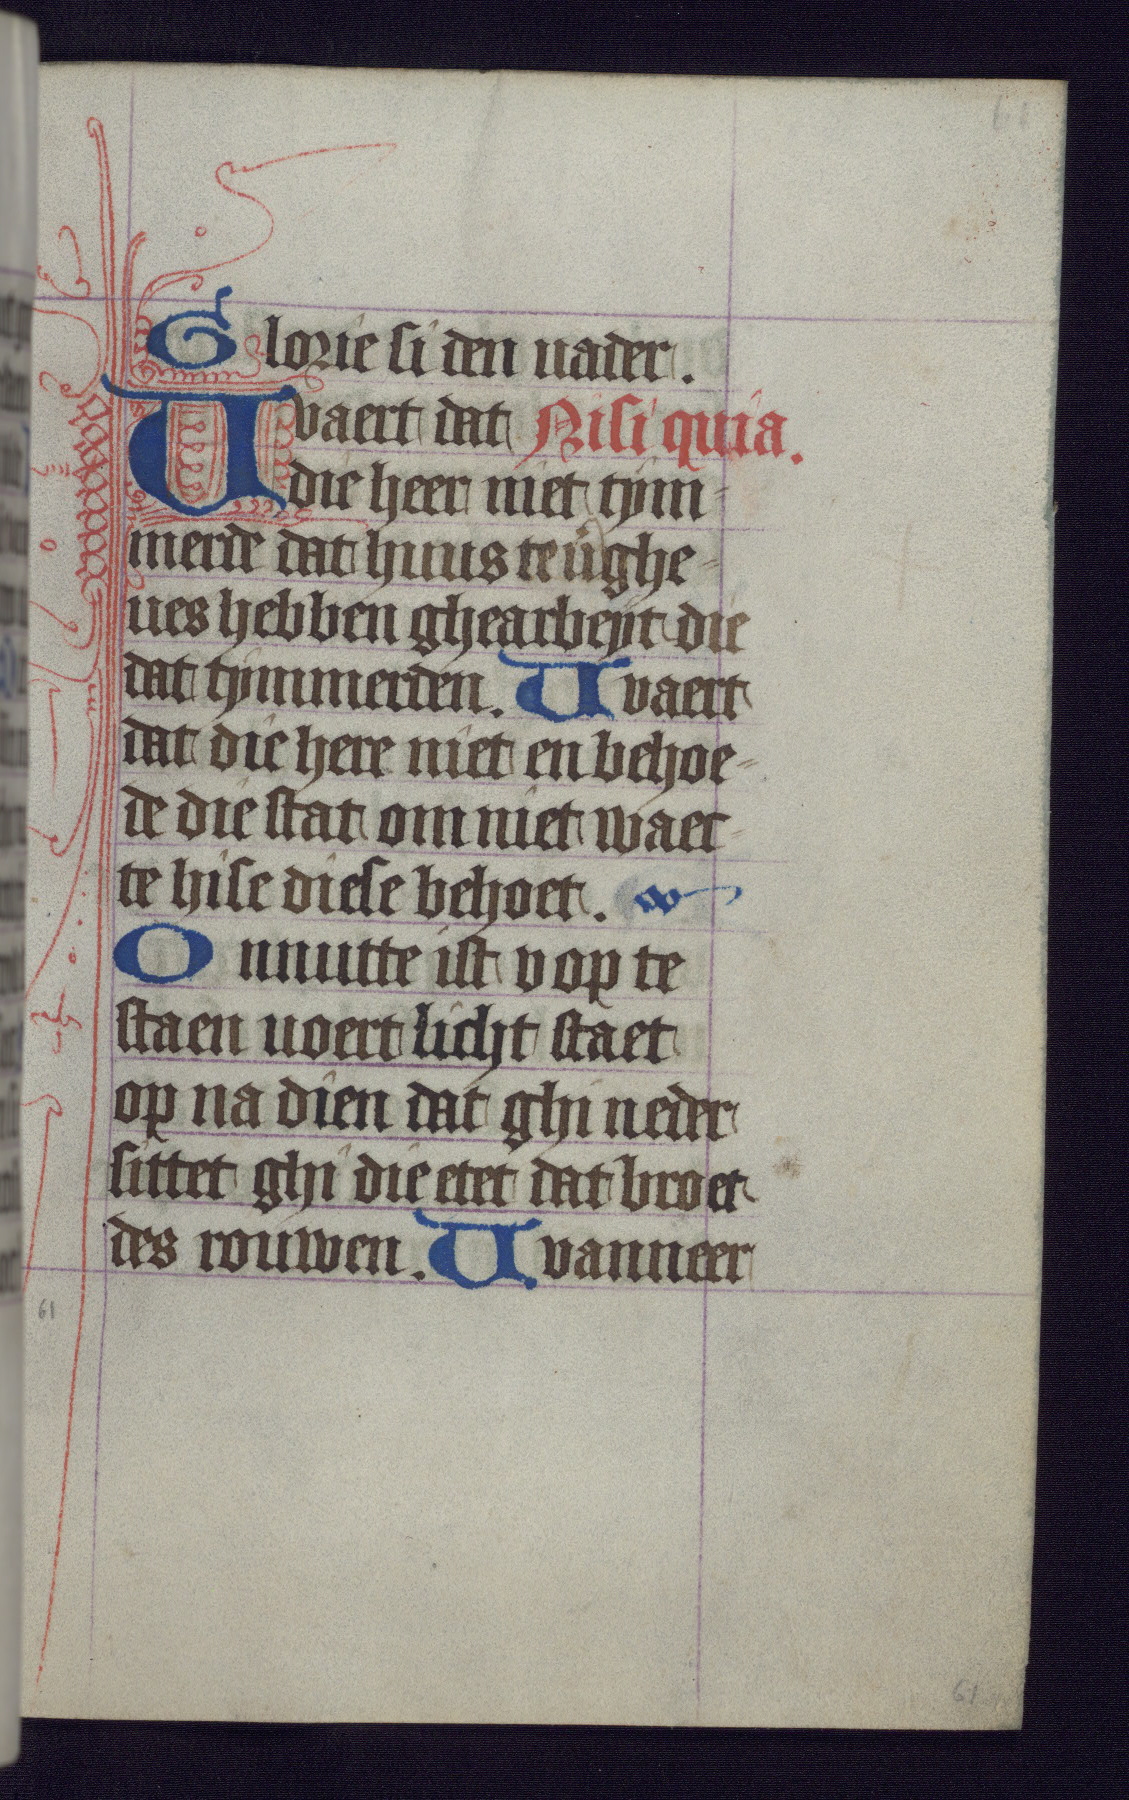 Glorie si den uader.
Uvaert dat Nisi quia.
die heer niet tym-
merde dat huus te ughe-
ues hebben ghearbeyt die
dat tymmerden. Uvaert
dat die here niet en behoe-
de die stat om niet waec-
te hi se diese behoet.
Onnutte ist v op te
staen uoert licht staet
op na dien dat ghi neder
sittet ghi die etet dat broet
des rouwen. Uvanneer
61
61
61